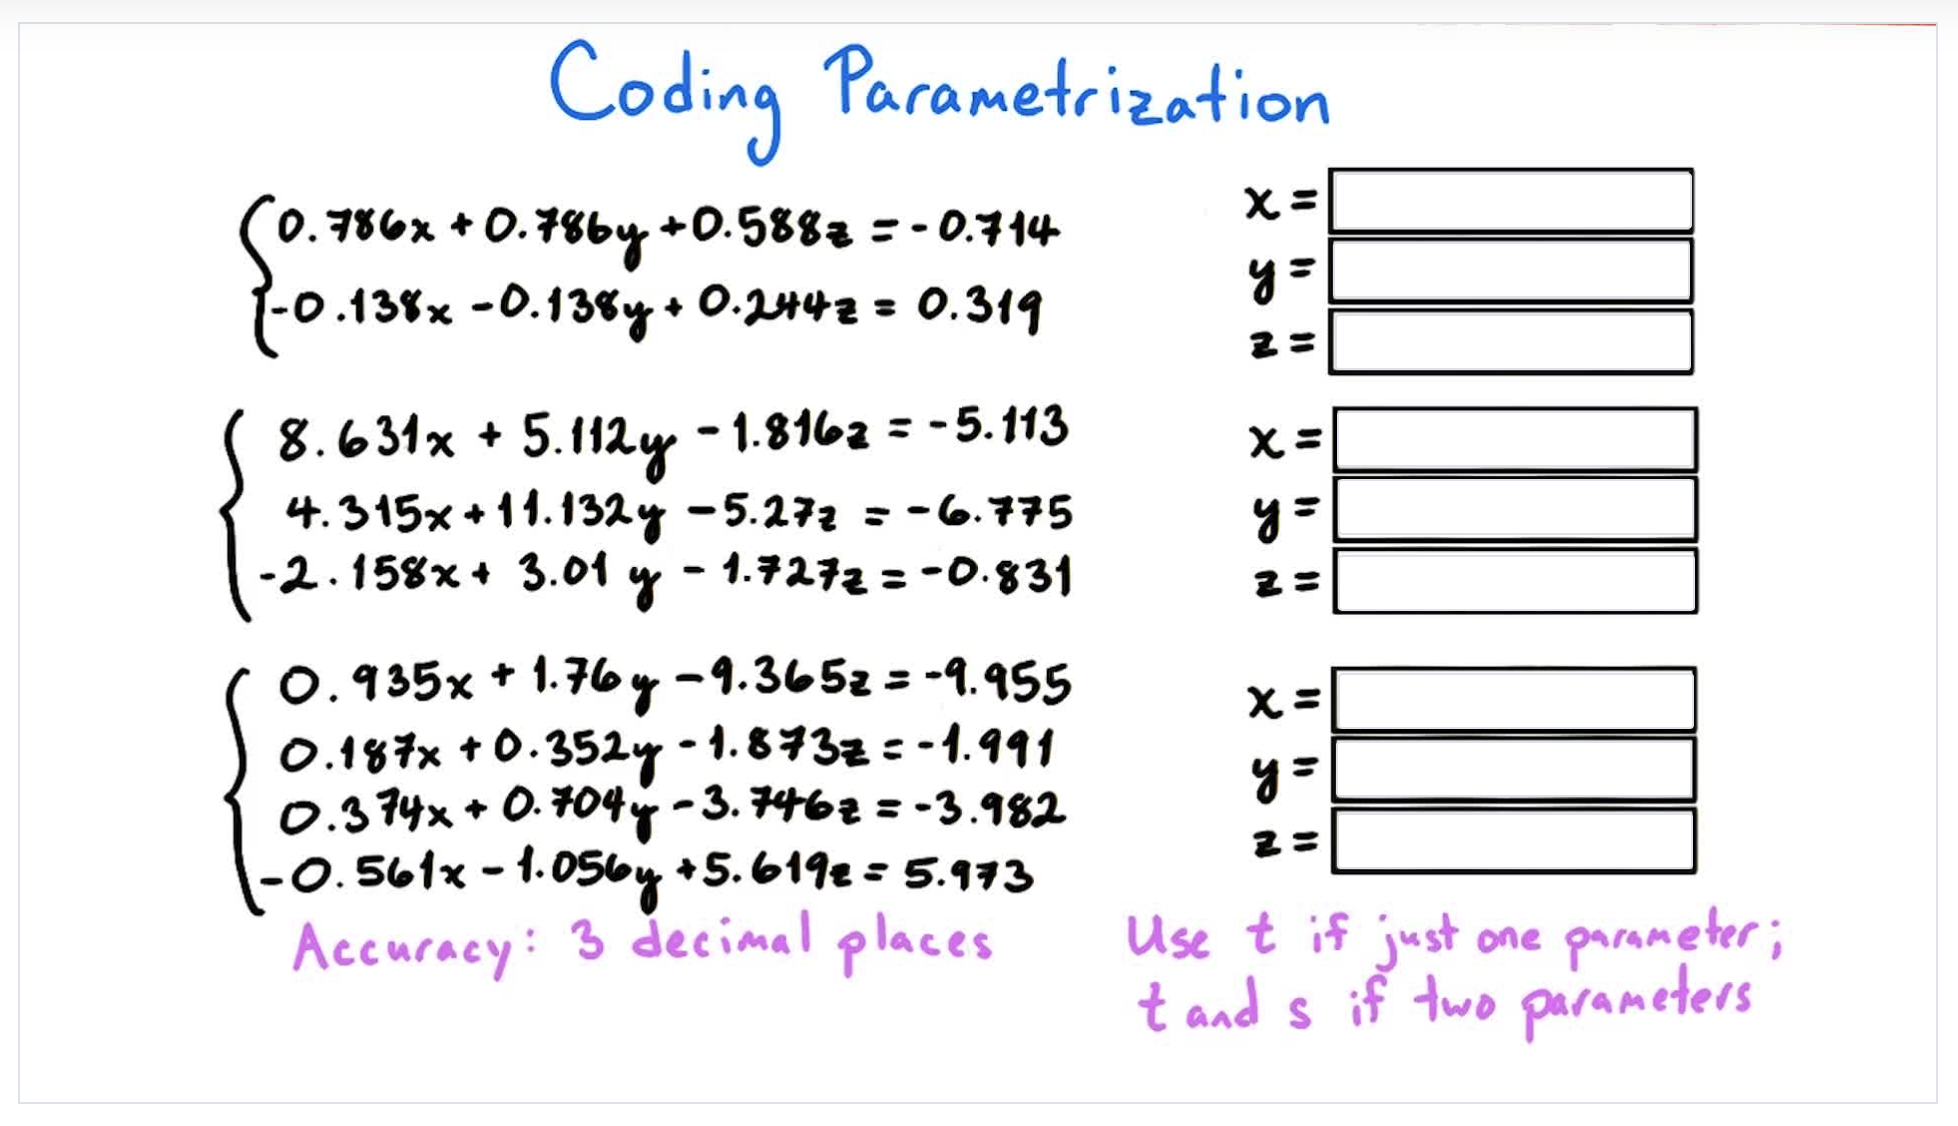 Coding Parametrization
0.786x + 0.786y + 0.588z = -0.714
-0.138x - 0.138y + 0.244z = 0.319
x =
y =
z =
8.631x + 5.112y - 1.816z = -5.113
4.315x + 11.132y - 5.27z = -6.775
-2.158x + 3.01y - 1.727z = -0.831
x =
y =
z =
0.935x + 1.76y - 9.365z = -9.955
0.187x + 0.352y - 1.873z = -1.991
0.374x + 0.704y - 3.746z = -3.982
-0.561x - 1.056y + 5.619z = 5.973
x =
y =
z =
Accuracy: 3 decimal places
Use t if just one parameter;
t and s if two parameters